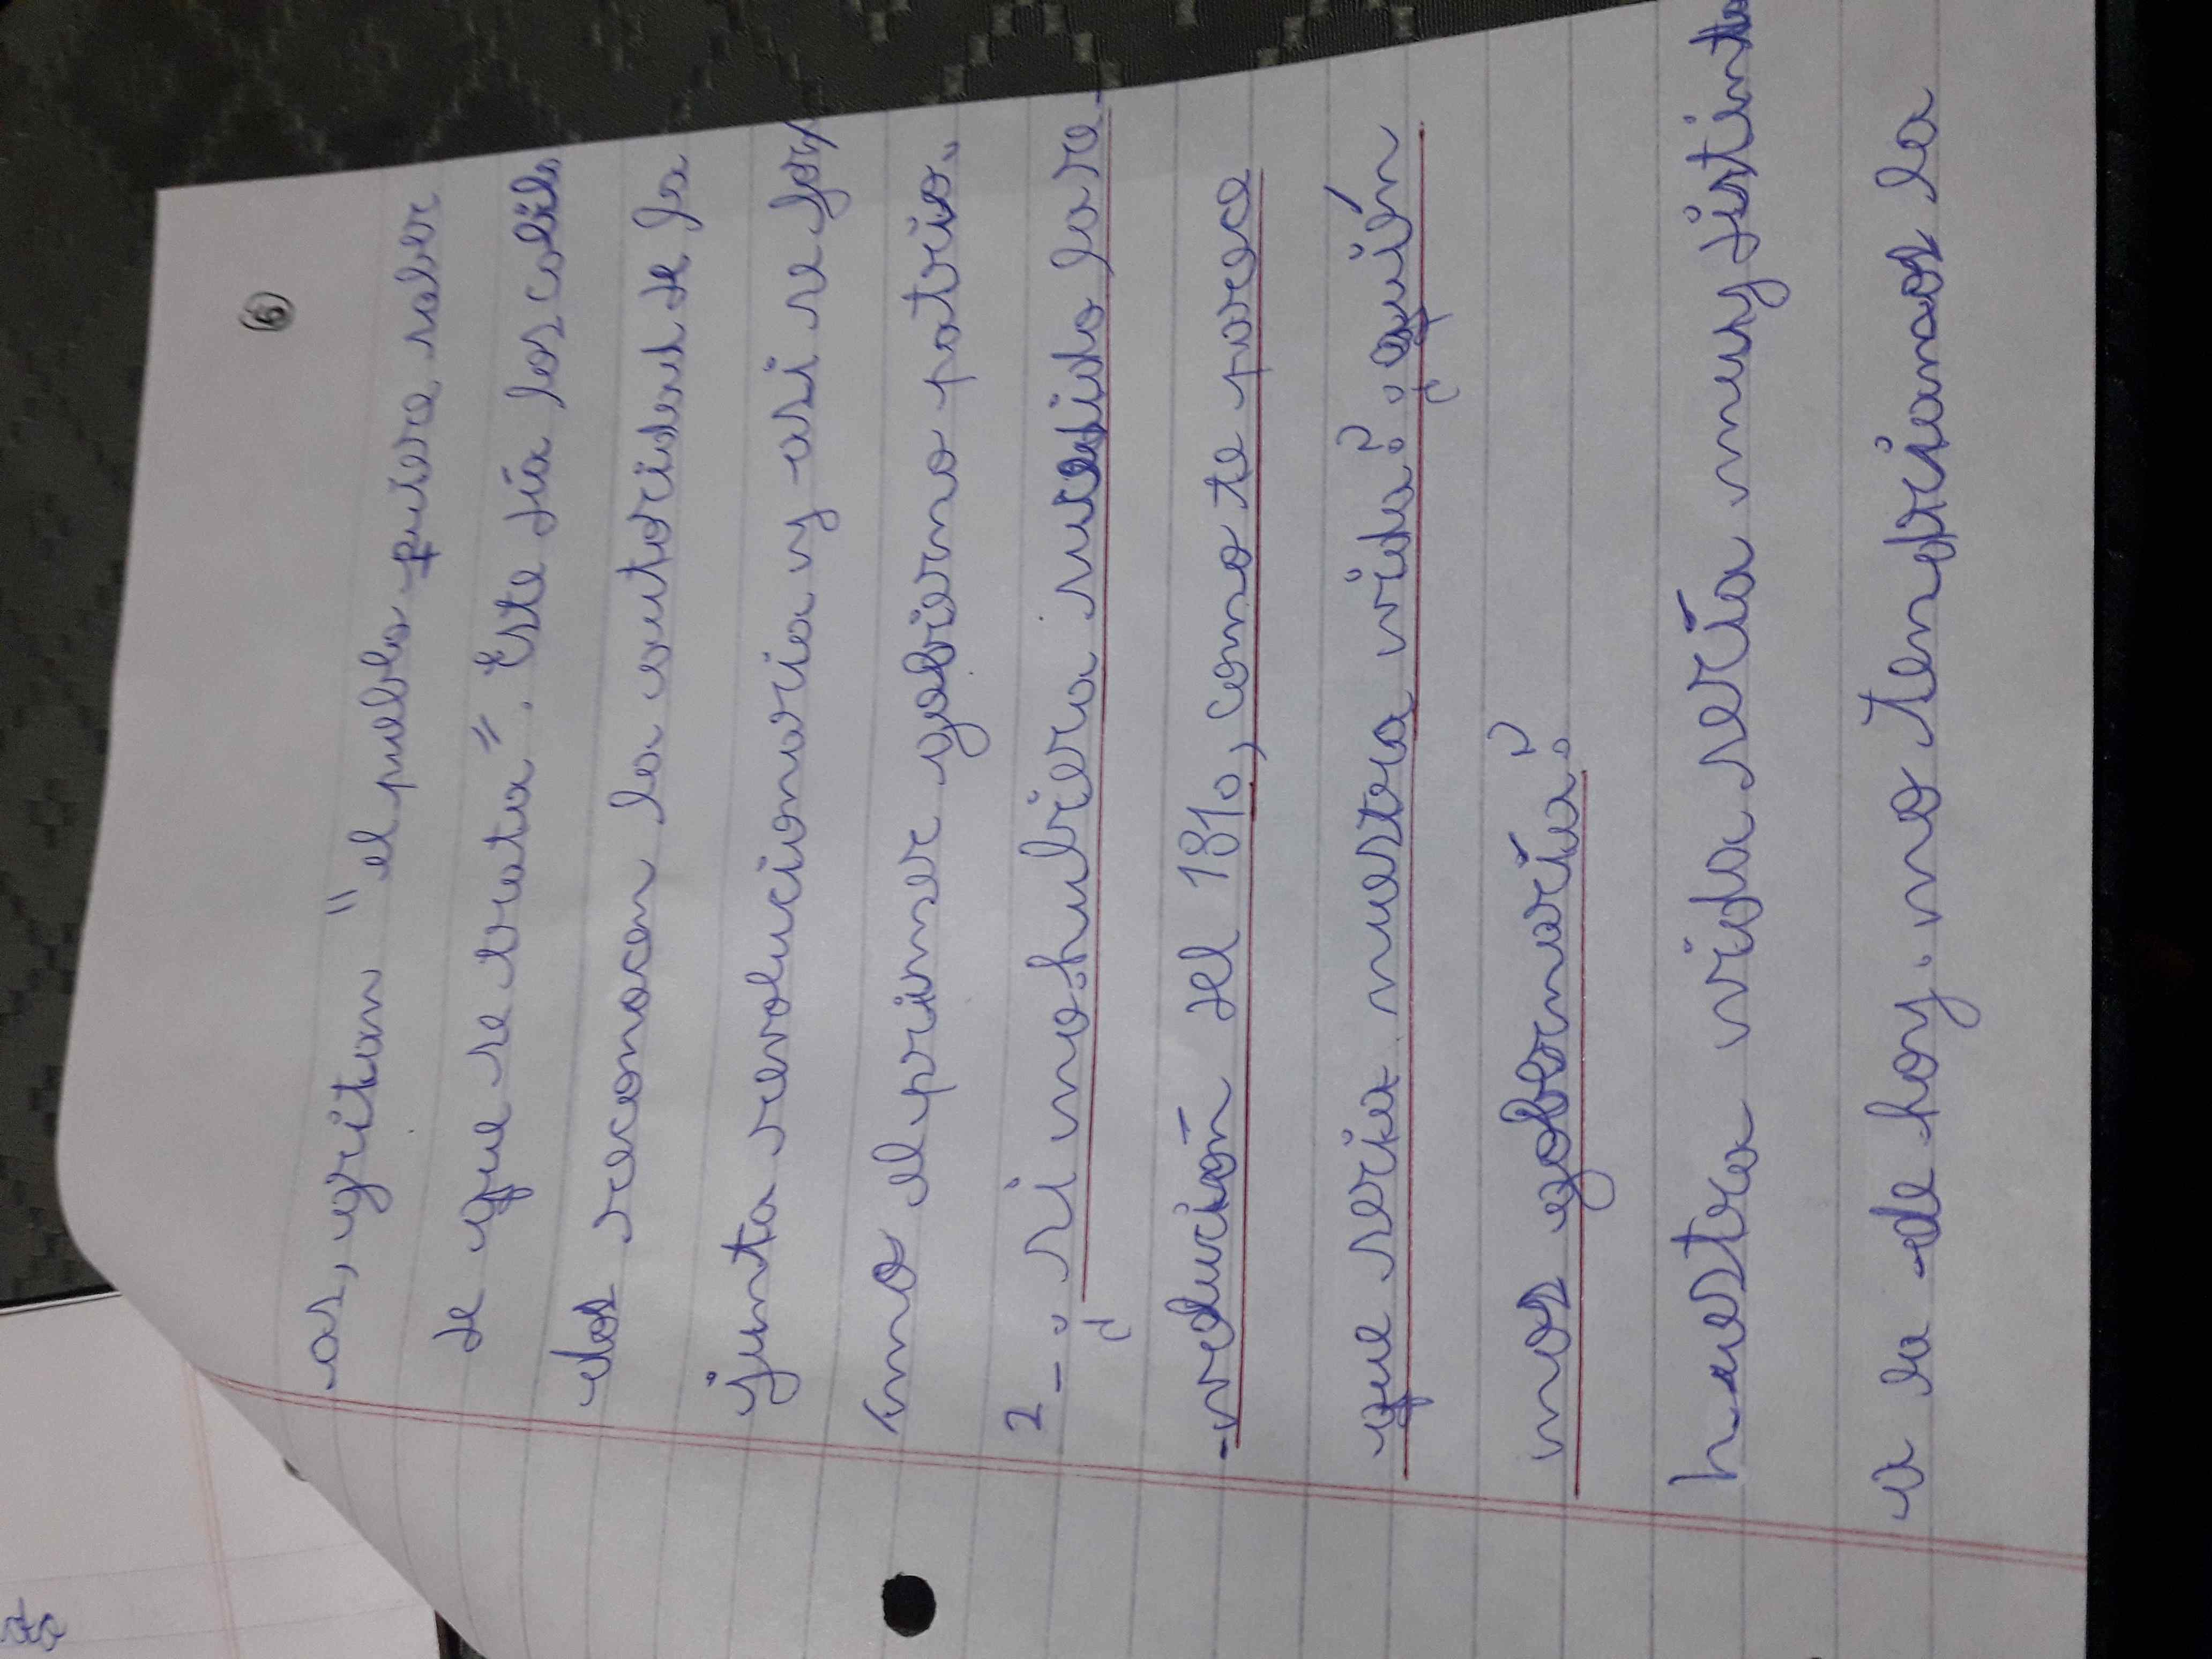 6
as, gritan "el pueblo quiere saber
de que se trata". Este día los cabil
dos reconocen la autoridad de la
junta revolucionaria y asi se for
mo el primer gobierno patrio.
2_ ¿si no hubiera sucedido la re
volución del 1810, como te parece
que seria nuestra vida? ¿quién
nos gobernaría?
nuestra vida sería muy distinta
a la de hoy. no tendriamos la